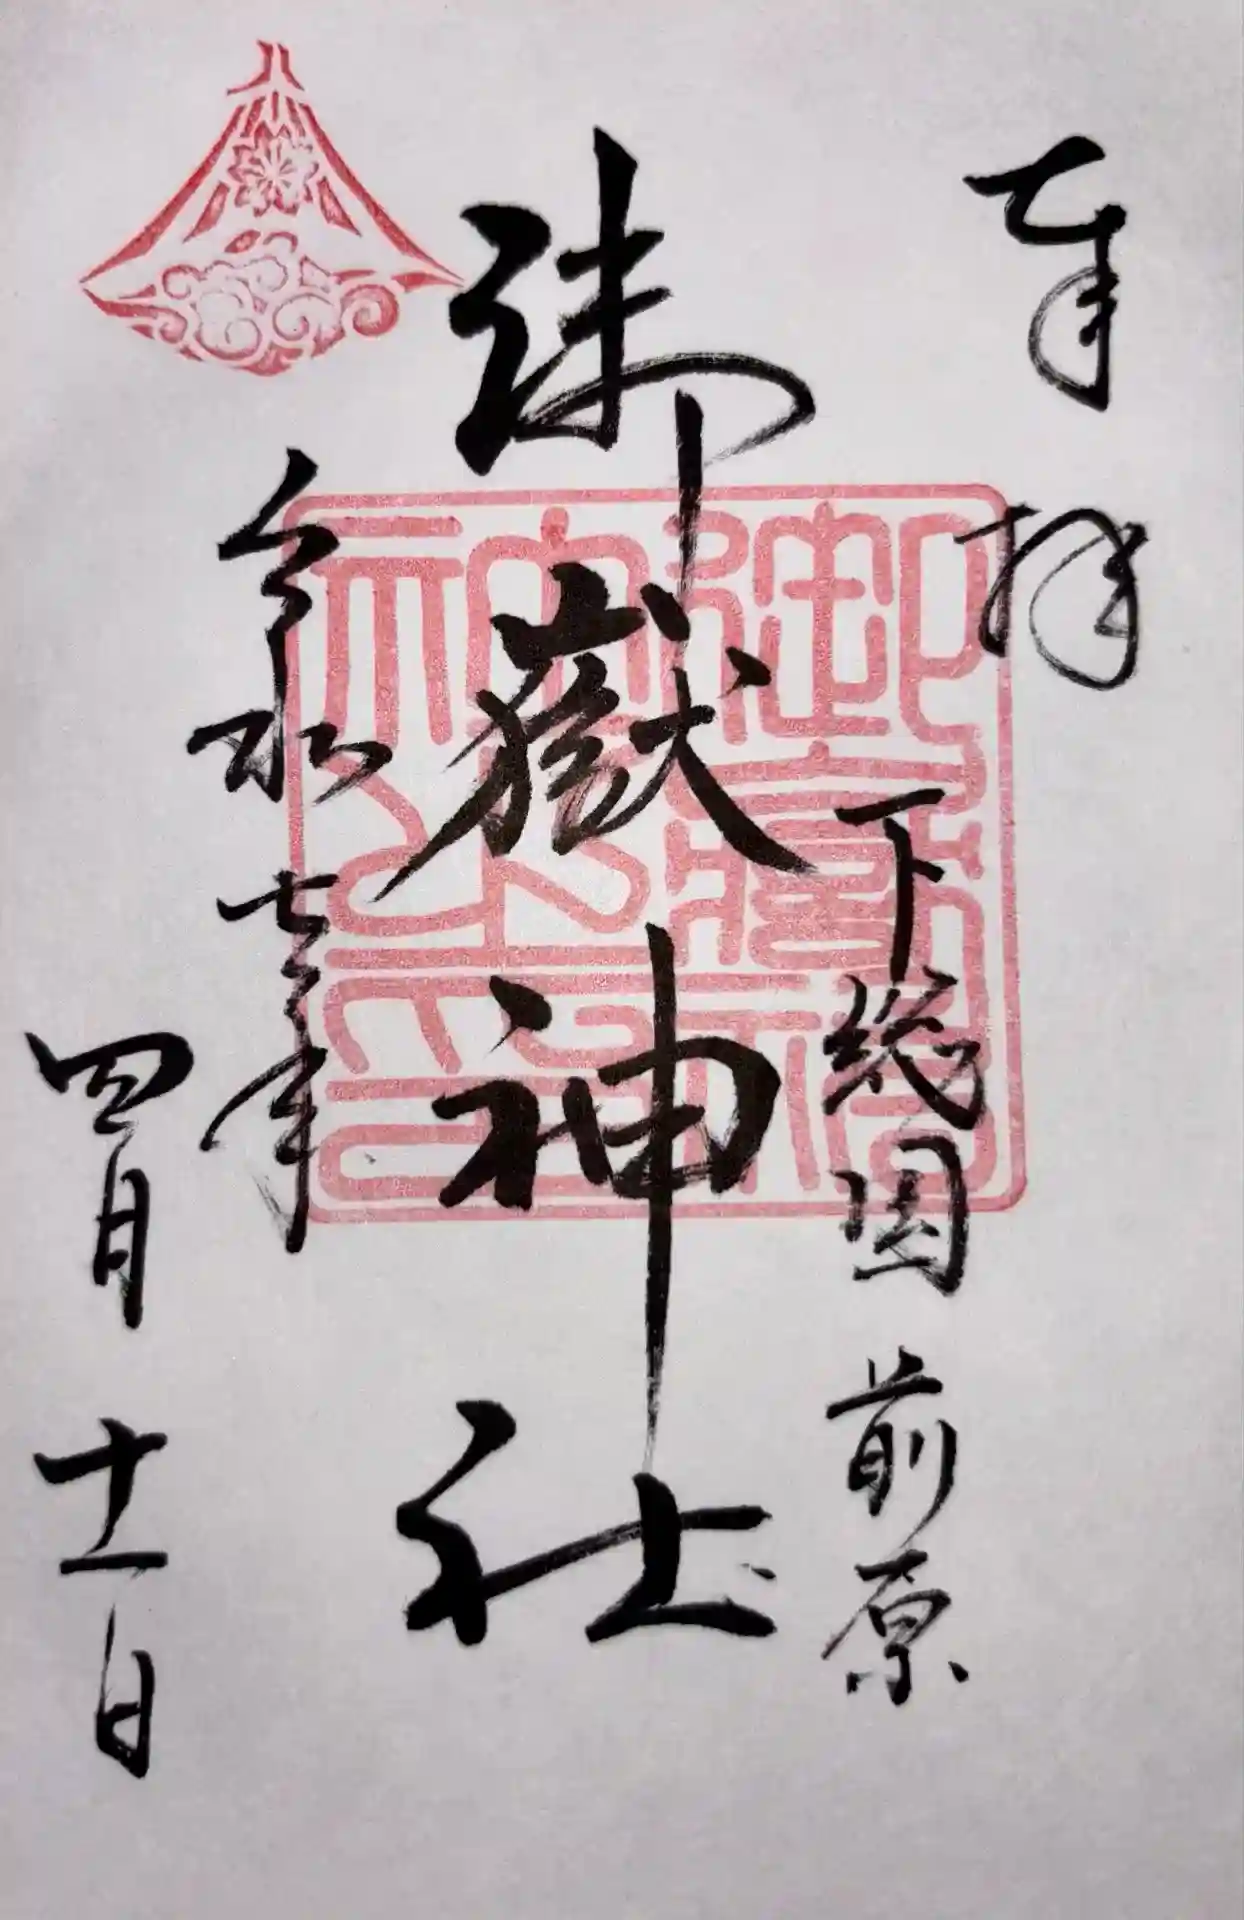 奉拝
下総国 前原
御嶽神社
令和七年
四月十一日